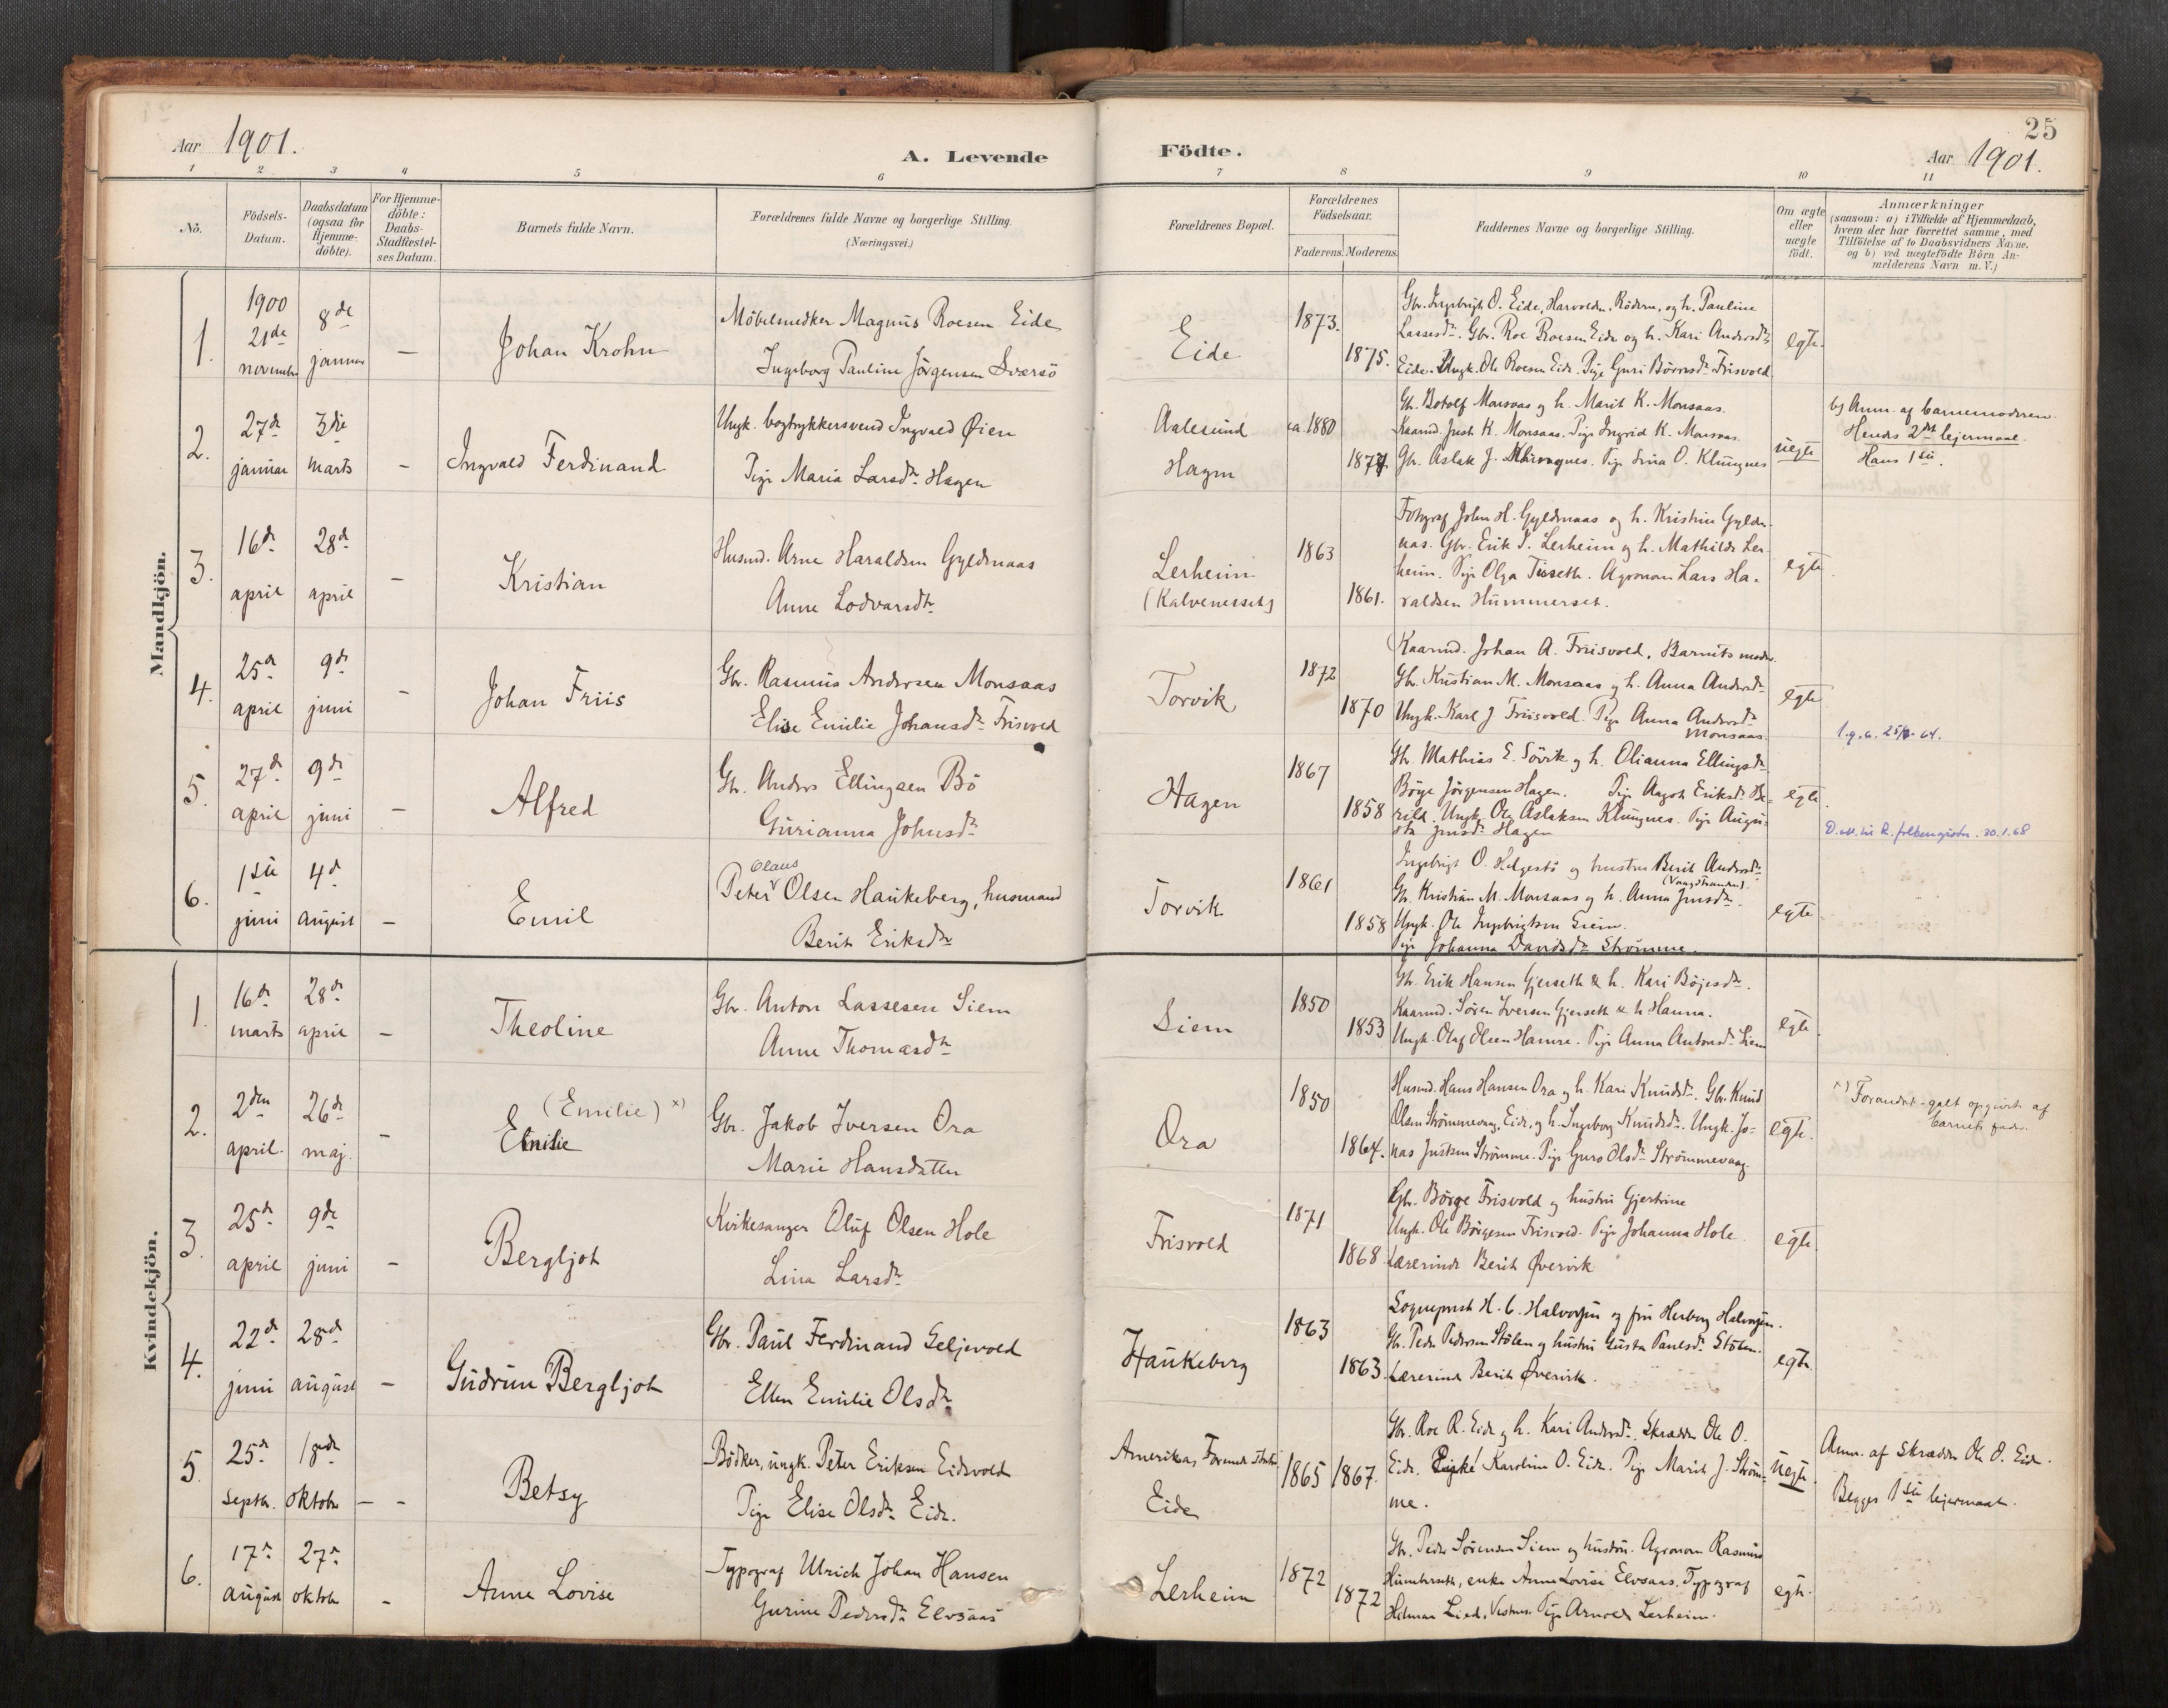 Aar 1901.
A. Levende
Födte.
25
Aar 1901.
1 2 3 4 5 6 7 8 9 10 11
No.
Födsels-
Datum.
Daabsdatum
(ogsaa for
Hjemme-
döbte).
For Hjemme-
döbte:
Daabs-
Stadfæstel-
ses Datum.
Barnets fulde Navn.
Forældrenes fulde Navne og borgerlige Stilling.
(Næringsvei.)
Forældrenes Bopæl.
Forældrenes
Födselsaar.
Faderens. Moderens.
Faddernes Navne og borgerlige Stilling.
Om ægte
eller
uægte
födt.
Anmærkninger
(saasom: a) i Tilfælde af Hjemmedaab,
hvem der har forrettet samme, med
Tilföielse af to Daabsvidners Navne,
og b) ved uægtefödte Börn An-
melderens Navn m. V.)
Mandkjön.
1.
1900
21de
november
8de
januar
–
Johan Krohn
Möbelsnedker Magnus Roesen Eide
Ingeborg Pauline Jörgensen Sværsö
Eide
1873.
1875.
Gbr. Ingebrigt O. Eide, Harvolden, Rödern, og h. Pauline
Lassesdtr. Gbr. Roe Roesen Eide og h. Kari Andersdtr
Eide. Ungk. Ole Roesen Eide. Pige Guri Börresdtr Frisvold
egte.
2.
27de
januar
3die
marts
–
Ingvald Ferdinand
Ungk. bogtrykkersvend Ingvald Øien
Pige Maria Larsdtr Hagen
Aalesund
Hagen
ca. 1880
1877
Gbr. Botolf Monsaas og h. Marit K. Monsaas.
Kaarmd. Just K. Monsaas. Pige Ingrid K. Monsaas.
Gbr. Aslak J. Klungnes. Pige Lina O. Klungnes
uegte
b) Anm. af barnemoderen.
Hendes 2det lejermaal.
Hans 1ste.
3.
16de
april
28de
april
–
Kristian
Husmd. Arne Haraldsen Gyldenaas
Anne Lodvarsdtr
Lerheim
(Kalvenesset)
1863
1861.
Fotograf John H. Gyldenaas og h. Kristine Gylde-
naas. Gbr. Erik I. Lerheim og h. Mathilde Ler-
heim. Pige Olga Tisseth. Agronom Lars Ha-
raldsen Hummerset.
egte.
4.
25de
april
9de
juni
–
Johan Friis
Gbr. Rasmus Andersen Monsaas
Elise Emilie Johansdtr Frisvold
Torvik
1872
1870
Kaarmd. Johan A. Friisvold. Barnets moder.
Gbr. Kristian M. Monsaas og h. Anna Andersdtr
Ungk. Karl J. Friisvold. Pige Anna Andersdtr
Monsaas.
egte
5.
27de
april
9de
juni
–
Alfred
Gbr. Anders Ellingsen Bö
Gurianna Johnsdtr
Hagen
1867
1858
Gbr. Mathias E. Sövik og h. Olianna Ellingsdtr
Börge Jörgensen Hagen. Pige Aagot Eriksdtr He-
rild. Ungk. Ole Aslaksen Klungnes. Pige Augu-
sta Jensdtr Hagen
egte.
6.
1ste
juni
4de
august
–
Emil
Olaus
Peter Olsen Haukeberg, husmand
Berit Eriksdtr
Torvik
1861
1858
Ingebrigt O. Helgestö og hustru Berit Andersdtr
(Vaagstranden).
Gbr. Kristian M. Monsaas og h. Anna Jensdtr.
Ungk. Ole Ingebrigtsen Siem.
Pige Johanna Davidsdtr Strömme.
egte
Kvindekjön.
1.
16de
marts
28de
april
–
Theoline
Gbr. Anton Lassesen Siem
Anne Thomasdtr
Siem
1850
1853
Gbr. Erik Hansen Gjerseth & h. Kari Böjesdtr.
Kaarmd. Sören Iversen Gjerseth & h Hanna.
Ungk. Olaf Olsen Hamre. Pige Anna Antonsdtr Siem
egte.
2.
2den
april.
26de
maj.
–
(Emilie) x)
Emilie
Gbr. Jakob Iversen Ora
Marie Hansdatter
Ora
1850
1864.
Husmd. Hans Hansen Ora og h. Kari Knudsdtr. Gbr. Knud
Olsen Strömmevaag, Eide, og h. Ingeborg Knudsdtr. Ungk. Jo-
nas Justsen Strömme. Pige Guro Olsdtr Strömmevaag.
egte.
x) Forandret - galt opgivet af
barnets fader.
3.
25de
april
9de
juni
–
Bergljot
Kirkesanger Oluf Olsen Hole
Lina Larsdtr
Frisvold
1871
1868
Gbr. Börge Frisvold og hustru Gjertrine
Ungk. Ole Börgesen Frisvold. Pige Johanna Hole.
Lærerinde Berit Øvervik
egte.
4.
22de
juni
28de
august
–
Gudrun Bergljot
Gbr. Paul Ferdinand Seljevold
Ellen Emilie Olsdtr
Haukeberg
1863
1863.
Sogneprest H. C. Halvorsen og fru Herborg Halvorsen.
Gbr. Peder Pedersen Stölen og hustru Gusta Paulsdtr Stölen.
Lærerinde Berit Øvervik.
egte.
5.
25de
septbr.
18de
oktober
– –
Betsy
Bödker, ungk. Peter Eriksen Eidsvold
Pige Elise Olsdtr Eide.
Amerikas Forenede Stater
Eide
1865
1867.
Gbr. Roe R. Eide og h. Kari Andersdtr. Skrædder Ole O.
Eide. Enke Karoline O. Eide. Pige Marit J. Ström-
me.
uegte.
Anm. af skrædder Ole O. Eide.
Begges 1ste lejermaal.
6.
17de
august
27de
oktober
–
Anne Lovise
Typograf Ulrich Johan Hansen
Gurine Pedersdtr Elvsaas
Lerheim
1872
1872
Gbr. Peder Sörensen Siem og hustru. Agronom Rasmus
Humberseth, enke Anne Lovise Elvsaas. Typograf
Hilmar Lied, Vestnes. Pige Arnolde Lerheim.
egte.